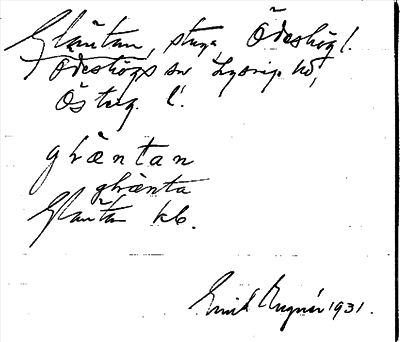 Gläntan, stuga, Ödeshög l.
Ödeshögs sn Lysings hd,
Österg. l.
glæntan
glænta
Gläntan kb.
Emil 1931.